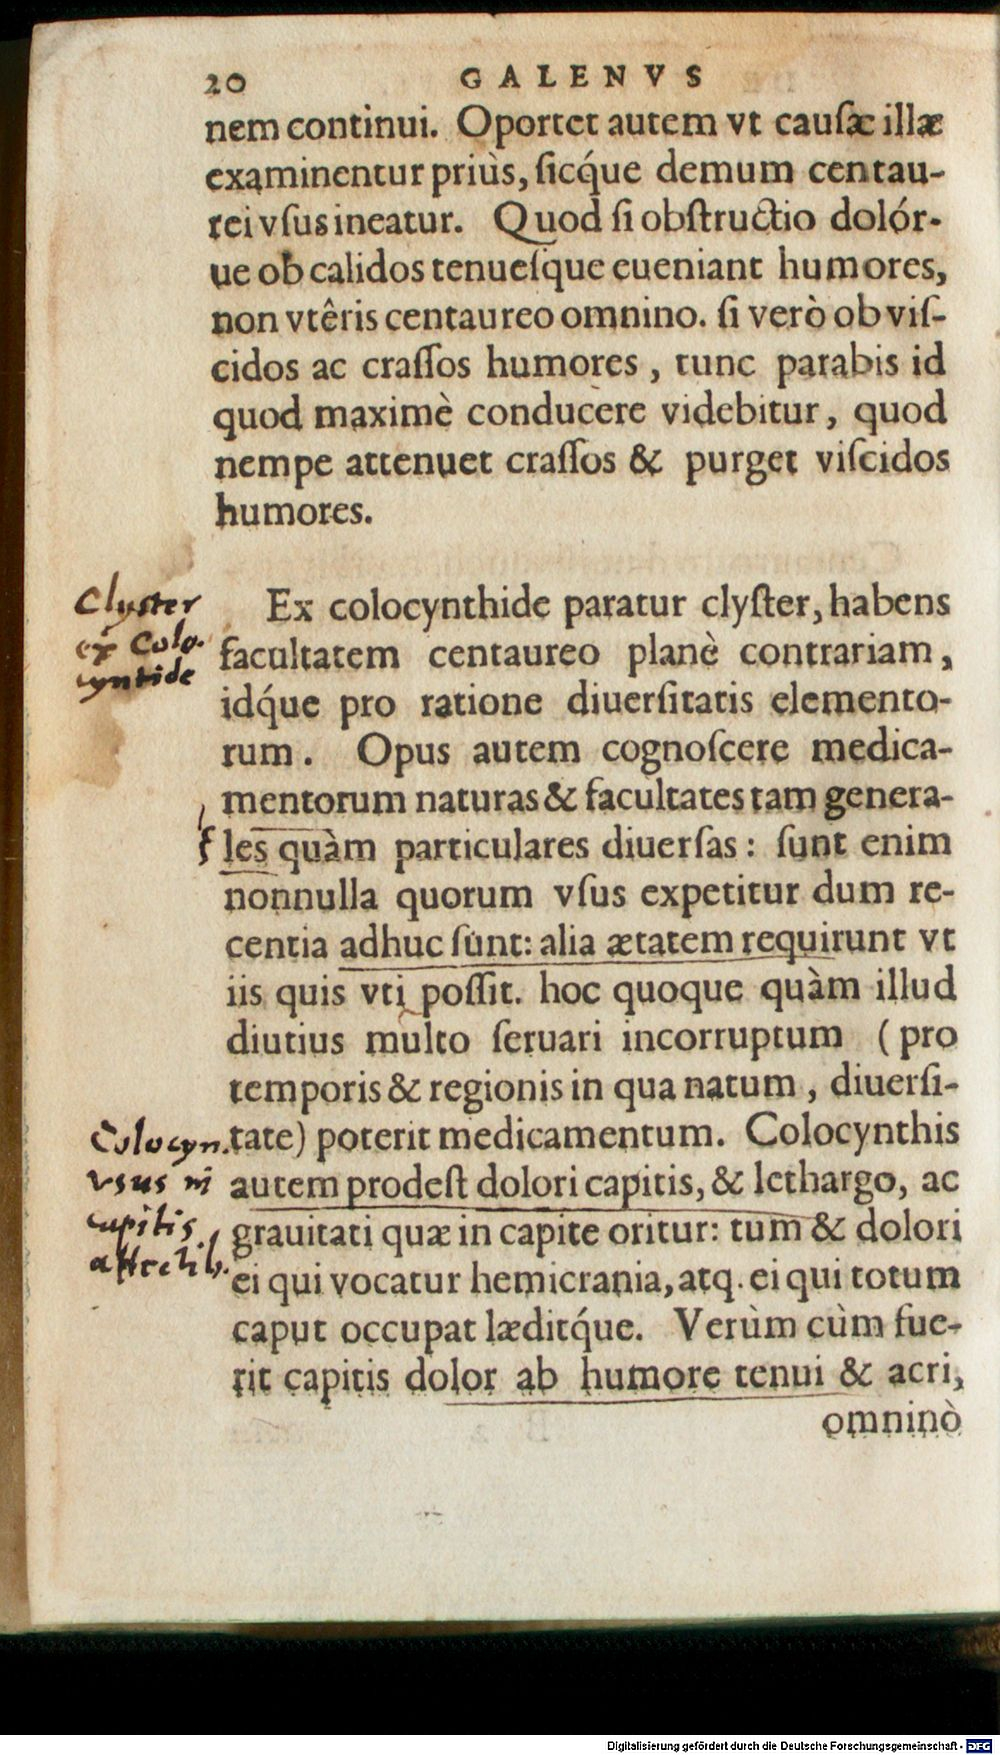 20 GALENVS
nem continui. Oportet autem vt causæ illæ
examinentur priùs, ſicq́ue demum centau-
rei vſus ineatur. Quod ſi obſtructio dolór-
ue ob calidos tenueſque eueniant humores,
non vtêris centaureo omnino. ſi verò ob viſ-
cidos ac craſſos humores, tunc parabis id
quod maximè conducere videbitur, quod
nempe attenuet craſſos & purget viſcidos
humores.
Clyster
ex Colo.
cyntide
Ex colocynthide paratur clyſter, habens
facultatem centaureo planè contrariam,
idq́ue pro ratione diuerſitatis elemento-
rum. Opus autem cognoſcere medica-
mentorum naturas & facultates tam genera-
les quàm particulares diuerſas: ſunt enim
nonnulla quorum vſus expetitur dum re-
centia adhuc ſunt: alia ætatem requirunt vt
iis quis vti poſſit. hoc quoque quàm illud
diutius multo ſeruari incorruptum (pro
temporis & regionis in qua natum, diuerſi-
tate) poterit medicamentum. Colocynthis
autem prodeſt dolori capitis, & lethargo, ac
grauitati quæ in capite oritur: tum & dolori
ei qui vocatur hemicrania, atq. ei qui totum
caput occupat læditq́ue. Verùm cùm fue-
rit capitis dolor ab humore tenui & acri,
omninò
Colocyn.
vsus in
capitis
affectib.
Digitalisierung gefördert durch die Deutsche Forschungsgemeinschaft - DFG